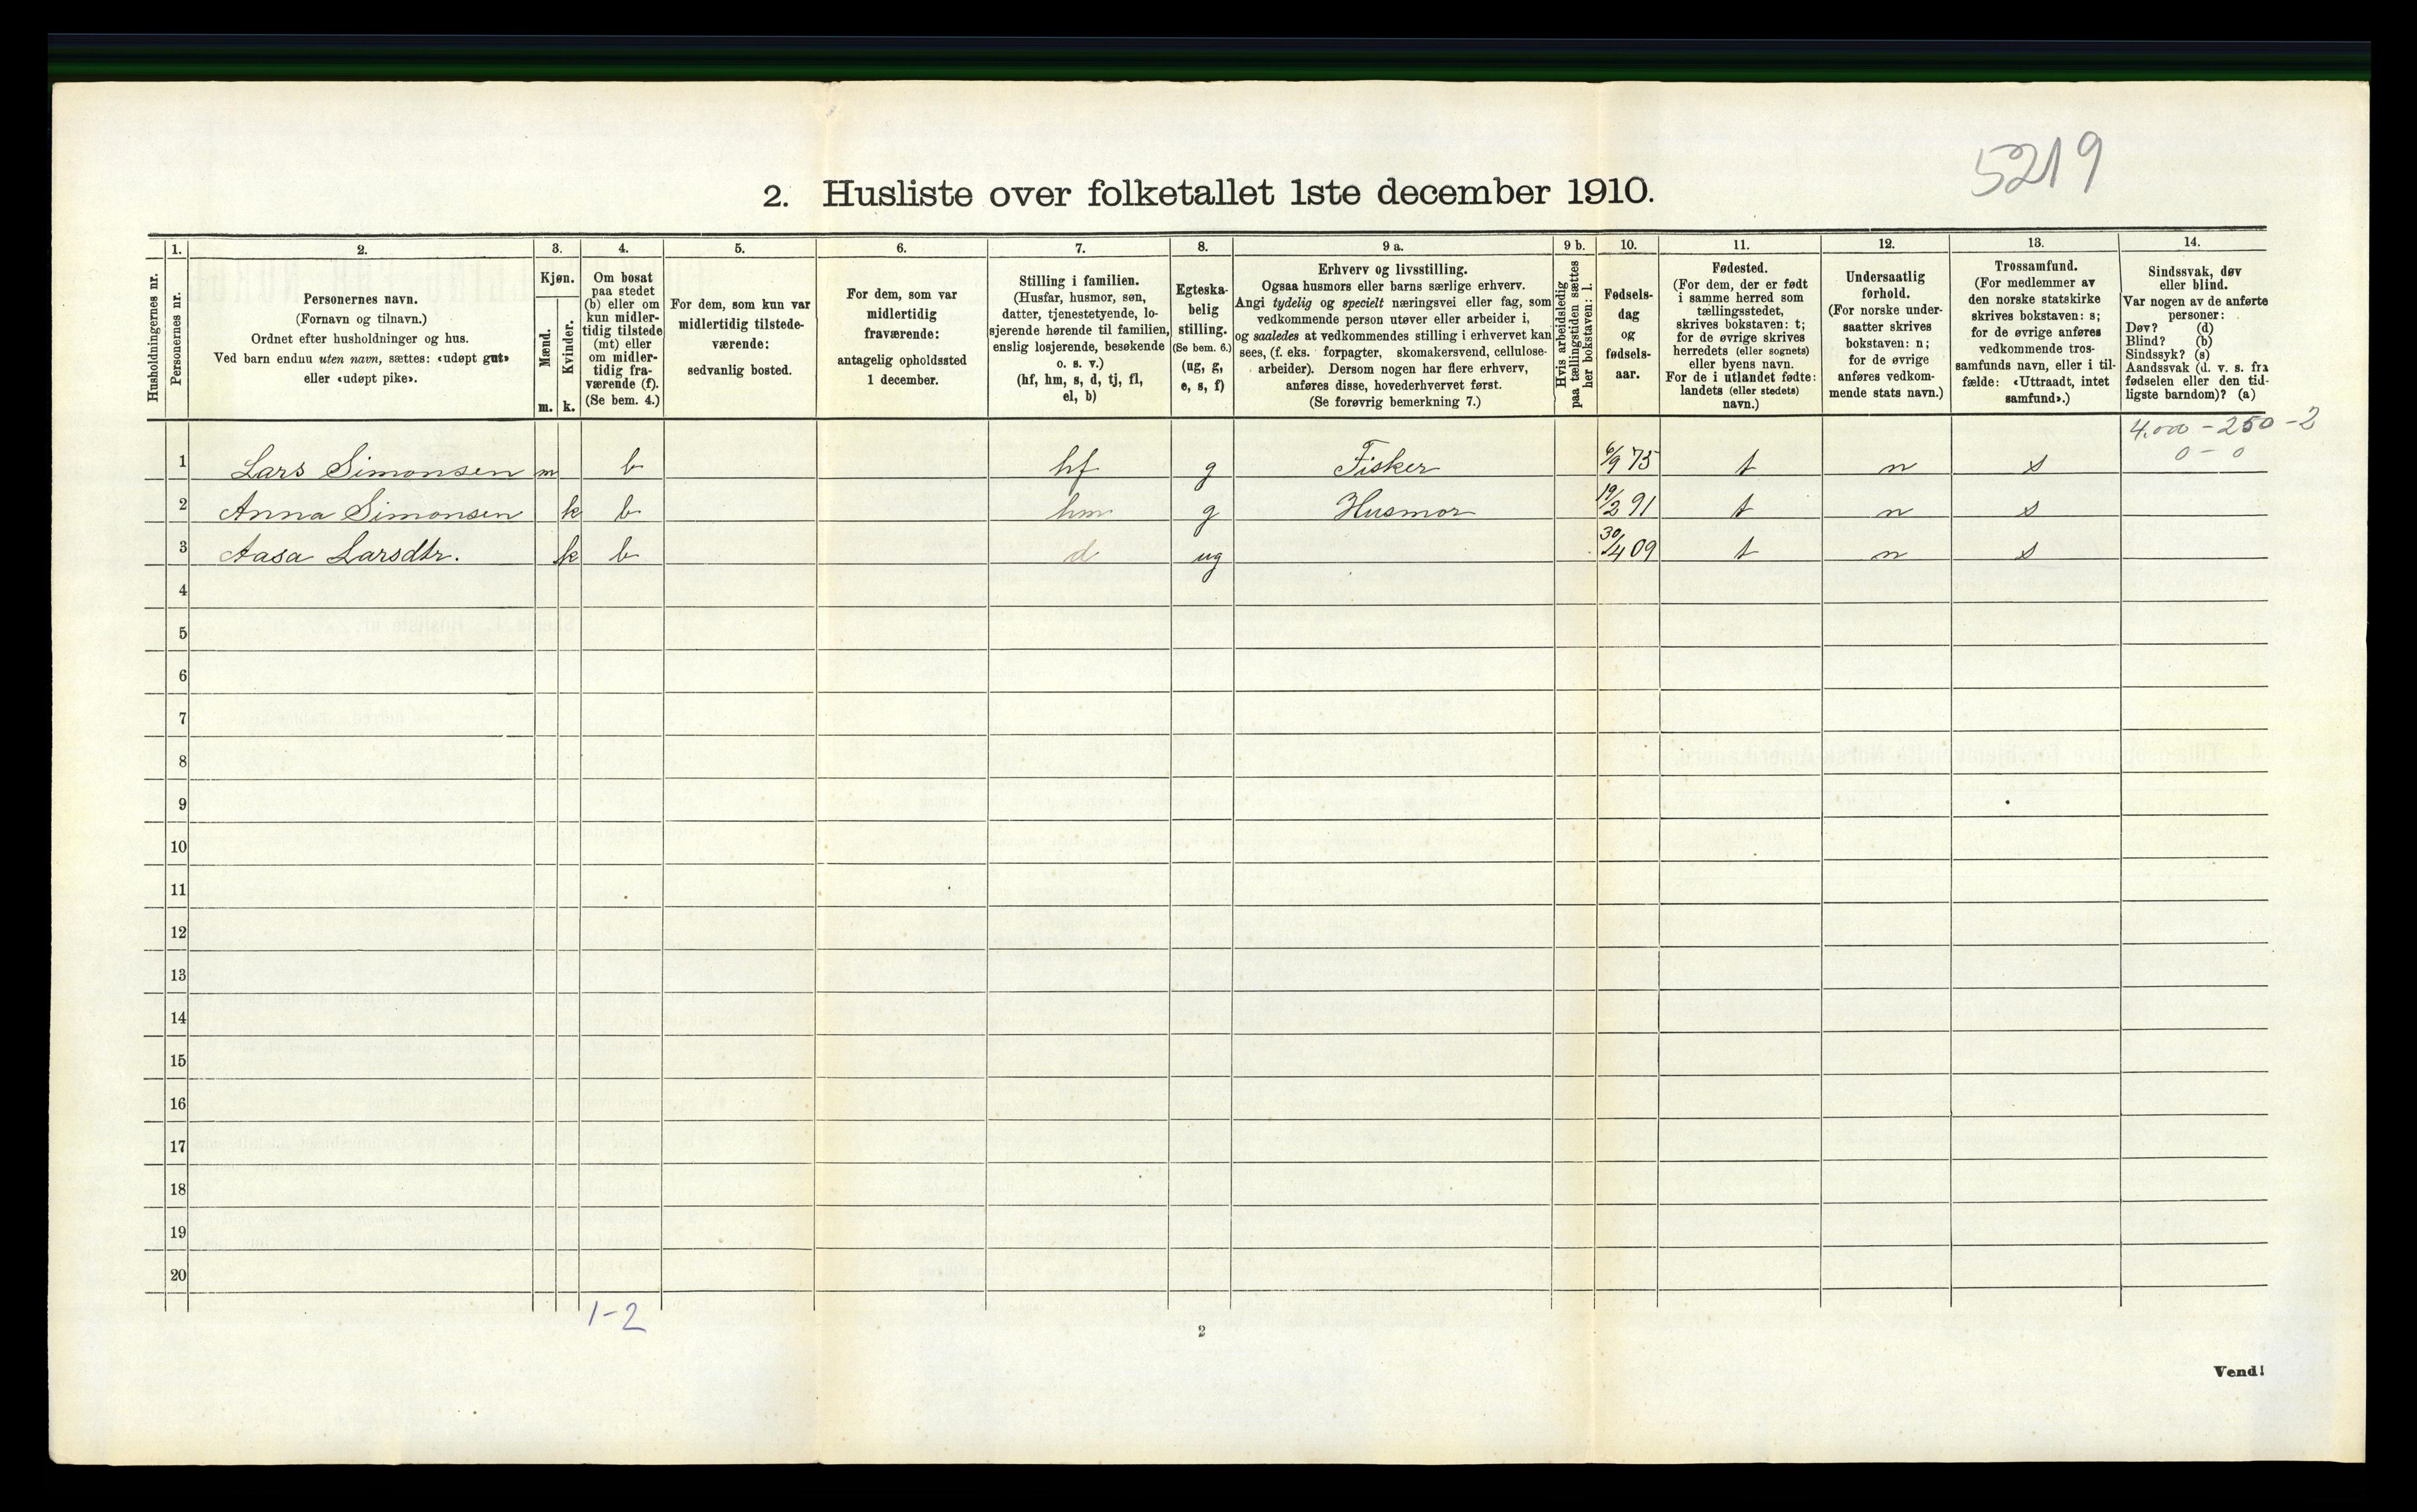 5219
2. Husliste over folketallet 1ste december 1910.
Husholdningernes nr.
1.
Personernes nr.
2.
Personernes navn.
(Fornavn og tilnavn.)
Ordnet efter husholdninger og hus.
Ved barn endnu uten navn, sættes: «udøpt gut»
eller «udøpt pike».
3.
Kjøn.
Mænd.
Kvinder.
m. k.
4.
Om bosat
paa stedet
(b) eller om
kun midler-
tidig tilstede
(mt) eller
om midler-
tidig fra-
værende (f).
(Se bem. 4.)
5.
For dem, som kun var
midlertidig tilstede-
værende:
sedvanlig bosted.
6.
For dem, som var
midlertidig
fraværende:
antagelig opholdssted
1 december.
7.
Stilling i familien.
(Husfar, husmor, søn,
datter, tjenestetyende, lo-
sjerende hørende til familien,
enslig losjerende, besøkende
o. s. v.)
(hf, hm, s, d, tj, fl,
el, b)
8.
Egteska-
belig
stilling.
(Se bem. 6.)
(ug, g,
e, s, f)
9 a.
Erhverv og livsstilling.
Ogsaa husmors eller barns særlige erhverv.
Angi tydelig og specielt næringsvei eller fag, som
vedkommende person utøver eller arbeider i,
og saaledes at vedkommendes stilling i erhvervet kan
sees, (f. eks. forpagter, skomakersvend, cellulose-
arbeider). Dersom nogen har flere erhverv,
anføres disse, hovederhvervet først.
(Se forøvrig bemerkning 7.)
9 b.
Hvis arbeidsledig
paa tællingstiden sættes
her bokstaven: l.
10.
Fødsels-
dag
og
fødsels-
aar.
11.
Fødested.
(For dem, der er født
i samme herred som
tællingsstedet,
skrives bokstaven: t;
for de øvrige skrives
herredets (eller sognets)
eller byens navn.
For de i utlandet fødte:
landets (eller stedets)
navn.)
12.
Undersaatlig
forhold.
(For norske under-
saatter skrives
bokstaven: n;
for de øvrige
anføres vedkom-
mende stats navn.)
13.
Trossamfund.
(For medlemmer av
den norske statskirke
skrives bokstaven: s;
for de øvrige anføres
vedkommende tros-
samfunds navn, eller i til-
fælde: «Uttraadt, intet
samfund».)
14.
Sindssvak, døv
eller blind.
Var nogen av de anførte
personer:
Døv? (d)
Blind? (b)
Sindssyk? (s)
Aandssvak (d. v. s. fra
fødselen eller den tid-
ligste barndom)? (a)
4.000 - 250 - 2
0 - 0
1 Lars Simonsen m b hf g Fisker 6/9 75 t n s
2 Anna Simonsen k b hm g Husmor 19/2 91 t n s
3 Aasa Larsdtr. k b d ug 30/4 09 t n s
4
5
6
7
8
9
10
11
12
13
14
15
16
17
18
19
20
1-2
2
Vend!